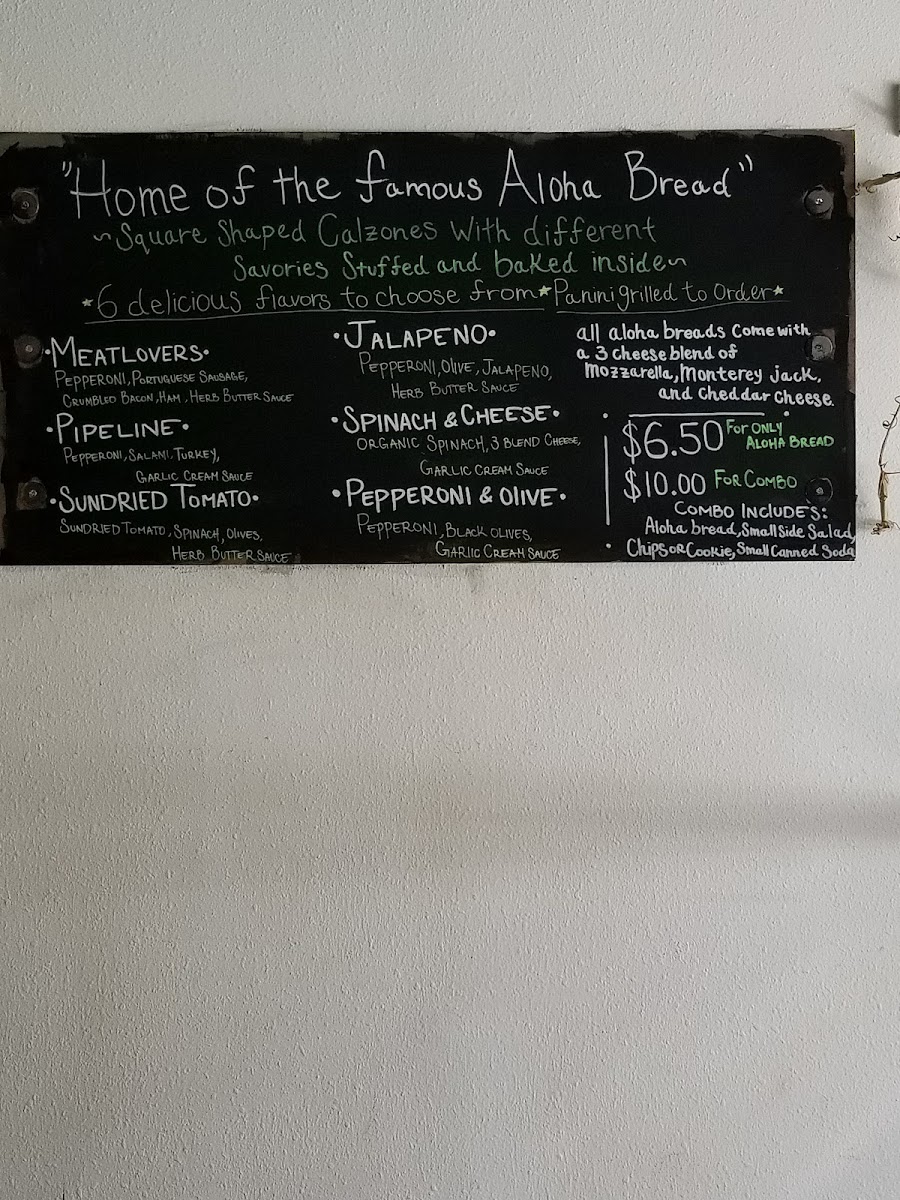 "Home of the famous Aloha Bread"
~Square Shaped Calzones With different
Savories Stuffed and baked inside~
*6 delicious flavors to choose from*Panini grilled to Order*
·MEATLOVERS·
PEPPERONI, PORTUGUESE SAUSAGE,
CRUMBLED BACON, HAM, HERB BUTTER SAUCE
·PIPELINE·
PEPPERONI, SALAMI, TURKEY,
GARLIC CREAM SAUCE
·SUNDRIED TOMATO·
SUNDRIED TOMATO, SPINACH, OLIVES,
HERB BUTTER SAUCE
·JALAPENO·
PEPPERONI, OLIVE, JALAPENO,
HERB BUTTER SAUCE
·SPINACH & CHEESE·
ORGANIC SPINACH, 3 BLEND CHEESE,
GARLIC CREAM SAUCE
·PEPPERONI & OlIVE·
PEPPERONI, BLACK OLIVES,
GARlIC CREAM SAUCE
all aloha breads Come with
a 3 cheese blend of
Mozzarella, Monterey jack,
and Cheddar Cheese.
$6.50 FOR ONLY
ALOHA BREAD
$10.00 FOR COMBO
COMBO INCLUDES:
Aloha bread, Small Side Salad,
Chips OR Cookie, Small Canned Soda